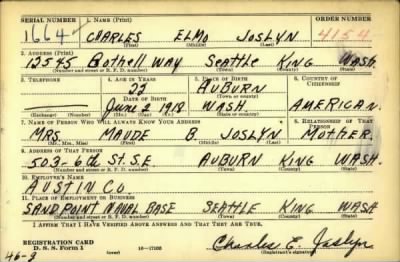 SERIAL NUMBER 1. NAME (Print) ORDER NUMBER
1664 CHARLES ELMO JOSLYN 4154
(First) (Middle) (Last)
2. ADDRESS (Print)
12545 Bothell WAY Seattle KING WASH.
(Number and street or R. F. D. number) (Town) (County) (State)
3. TELEPHONE 4. AGE IN YEARS 5. PLACE OF BIRTH 6. COUNTRY OF CITIZENSHIP
22 AUBURN
DATE OF BIRTH (Town or county)
JUNE 2 1918 WASH. AMERICAN.
(Exchange) (Number) (Mo.) (Day) (Yr.) (State or country)
7. NAME OF PERSON WHO WILL ALWAYS KNOW YOUR ADDRESS 8. RELATIONSHIP OF THAT PERSON
MRS MAUDE B. JOSLYN MOTHER.
(Mr., Mrs., Miss) (First) (Middle) (Last)
9. ADDRESS OF THAT PERSON
503-6th St. S.E. AUBURN KING WASH.
(Number and street or R. F. D. number) (Town) (County) (State)
10. EMPLOYER'S NAME
AUSTIN CO.
11. PLACE OF EMPLOYMENT OR BUSINESS
SANDPOINT NAVAL BASE SEATTLE KING WASH
(Number and street or R. F. D. number) (Town) (County) (State)
I AFFIRM THAT I HAVE VERIFIED ABOVE ANSWERS AND THAT THEY ARE TRUE.
REGISTRATION CARD
D. S. S. Form 1 (over) 16-17105 Charles E. Joslyn
(Registrant's signature)
46-9